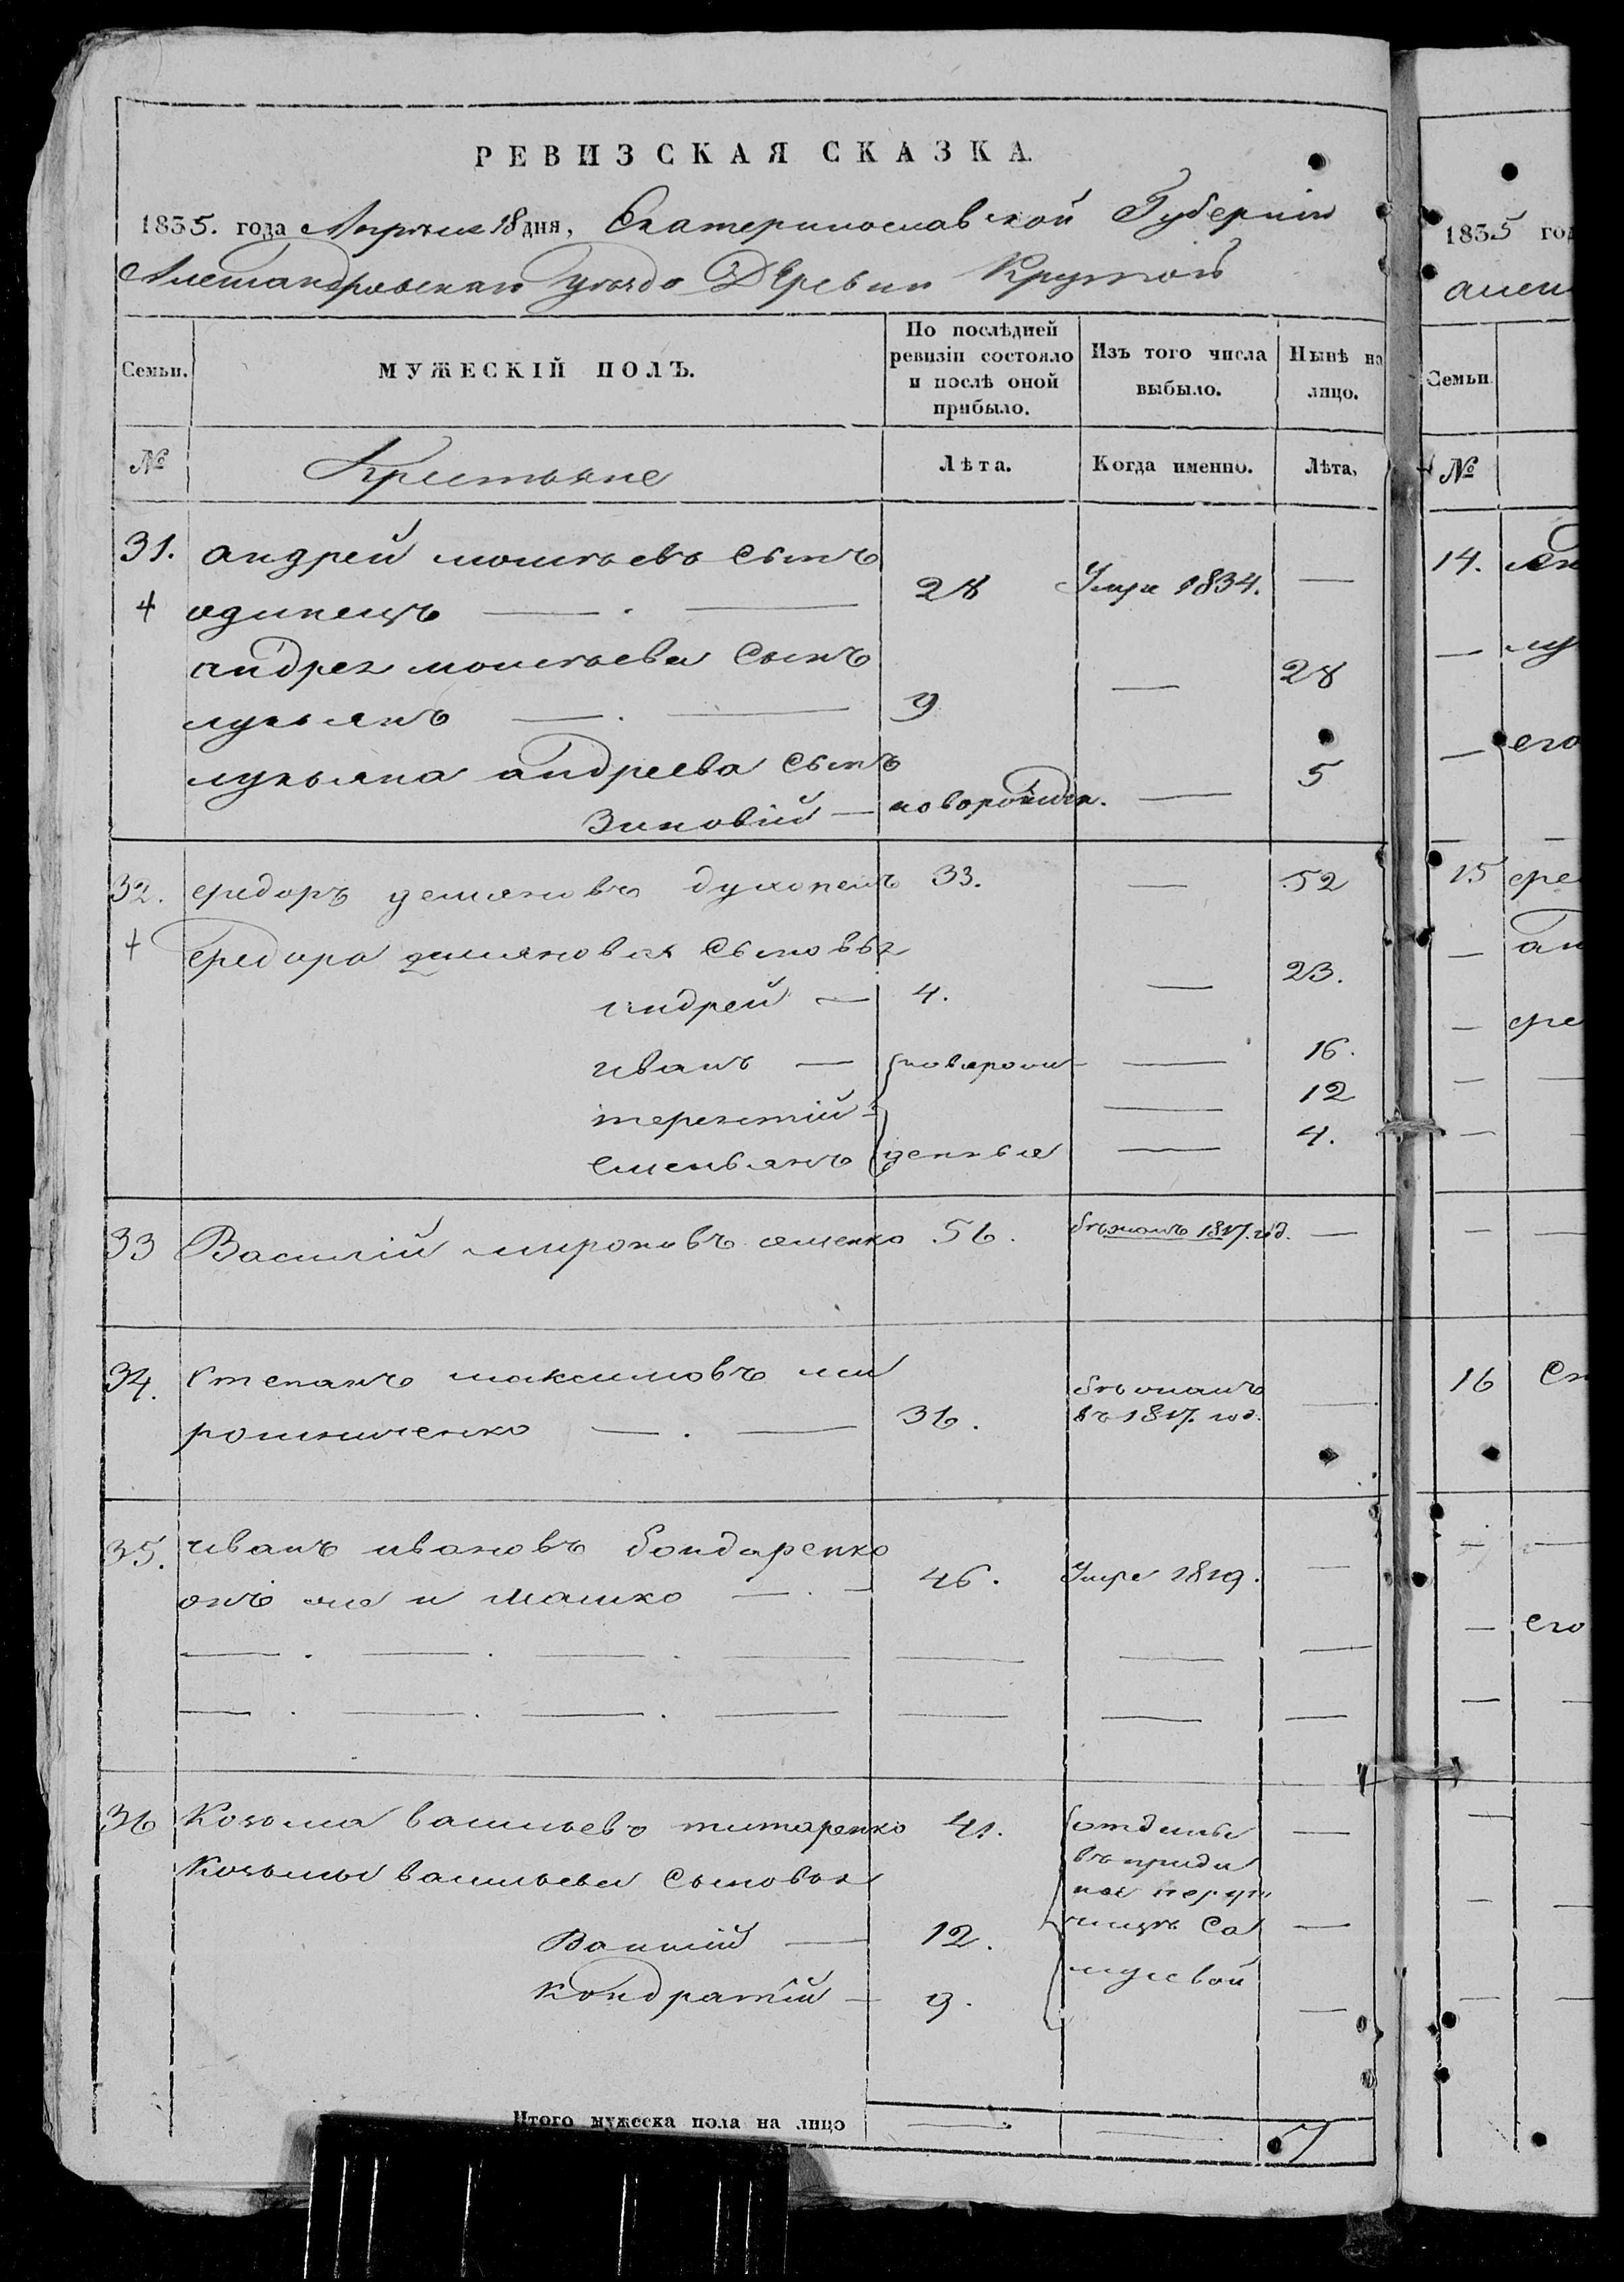 РЕВИЗСКАЯ СКАЗКА.
1835. года Апреля 18 дня, Екатеринославской Губернии
Александровского уезда Деревни Крутой
Семьи.
МУЖЕСКІЙ ПОЛЪ.
По послѣдней
ревизіи состояло
и послѣ оной
прибыло.
Изъ того числа
выбыло.
Нынѣ на
лицо.
№
Крестьяне
Лѣта.
Когда именно.
Лѣта.
31. андрей моисеевъ сынъ
одинецъ — . — 28 Умре 1834. —
андрея моисеева сынъ
лукьянъ — . — 9 — 28
лукьяна андреева сынъ
Зиновій — новорожден. — 5
32. федоръ демяновъ 33. — 52
федора демянова сыновья
андрей — 4. — 23.
иванъ — новорож — 16.
терентій — — 12
емельянъ денные — 4.
33 Василій мироновъ семенко 56. бежалъ 1817. год. —
34. степанъ максимовъ ми
рошниченко — . — 36. бежалъ въ 1817. год. —
35. иванъ ивановъ бондаренко
онъ же и машко — . — 46. Умре 1819. —
36 Козьма васильевъ титаренко 41. —
Козьмы васильева сыновья
Василій — 12. —
Кондратій — 9. —
Итого мужеска пола на лицо — — 7
1835 год
Семьи
№
14.
его
15
16
его